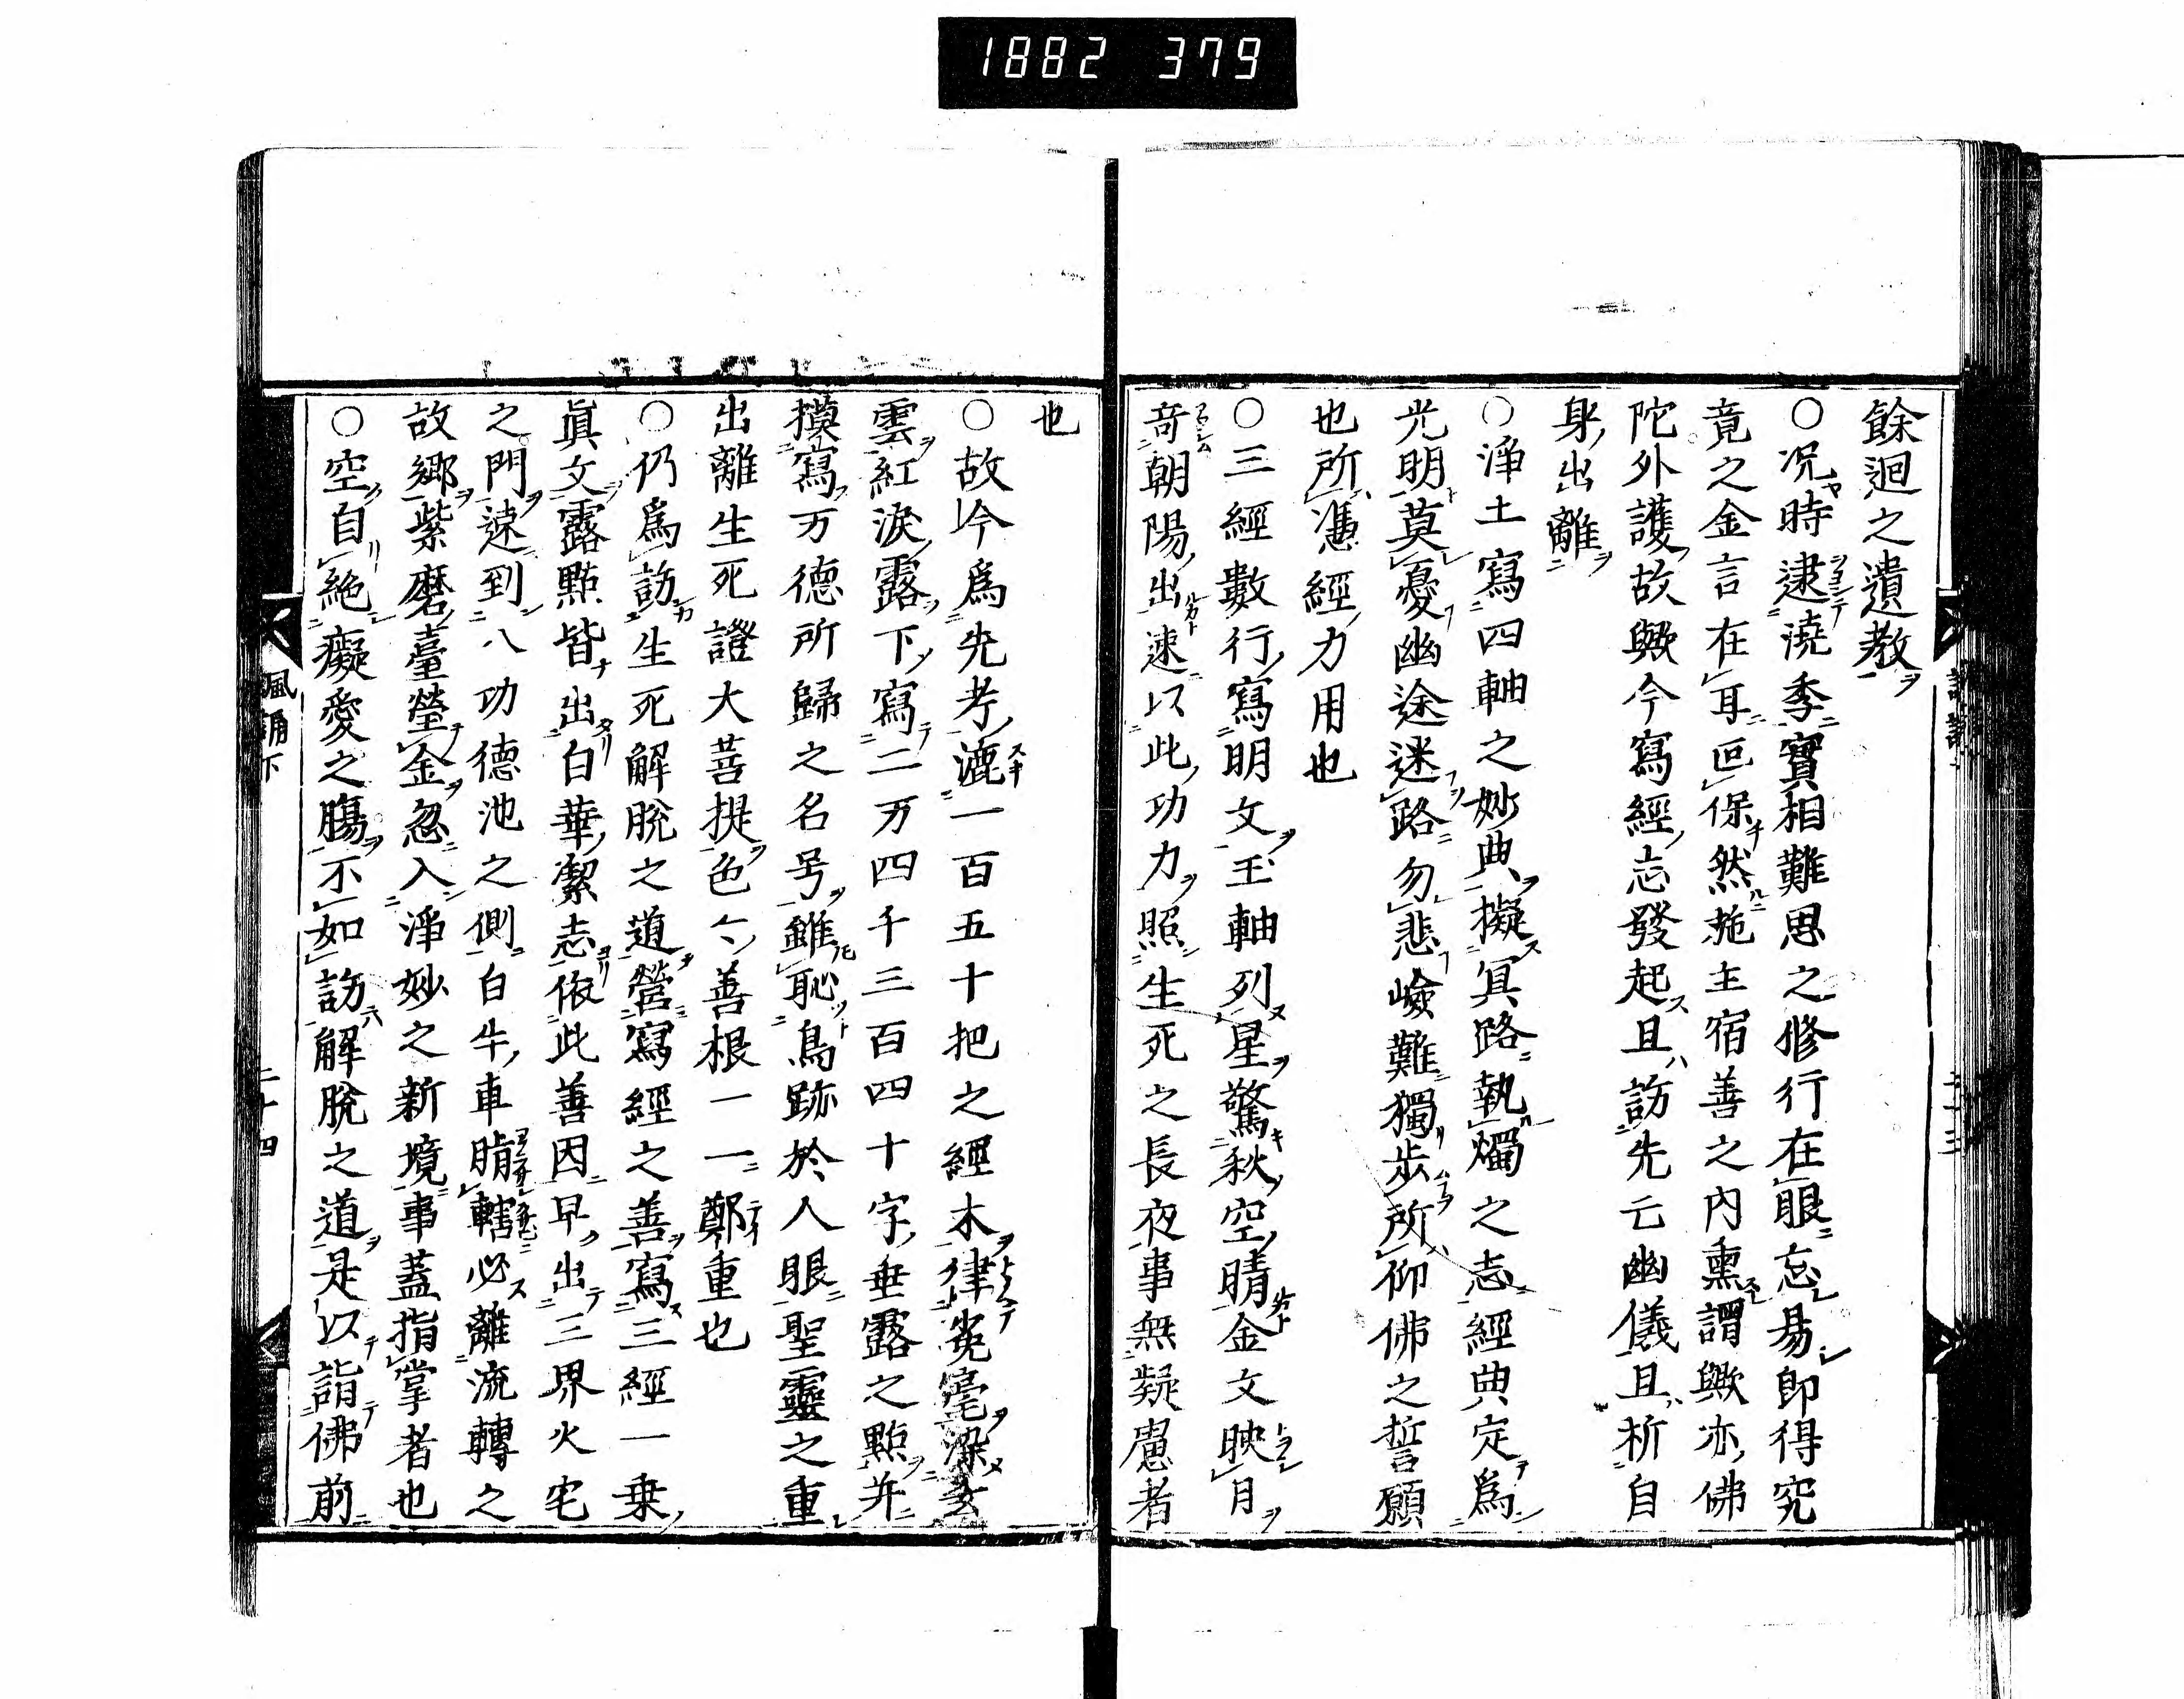 1882 379
餘迴之遺教
○況時逮澆季實相難思之修行在眼忘易即得究
竟之金言在耳叵保然施主宿善之內熏謂歟亦佛
陀外護故歟今寫經志發起且訪先亡幽儀且祈自
身出離
○淨土寫四軸之妙典擬冥路執燭之志經典定爲
光明莫憂幽途迷路勿悲嶮難獨步所仰佛之誓願
也所憑經力用也
○三經數行寫明文玉軸列星驚秋空晴金文映月
奇朝陽出速以此功力照生死之長夜事無疑慮者
也
○故今爲先考漉一百五十把之經木律菟毫染玄
雲紅淚露下寫二万四千三百四十字垂露之點并
摸寫万德所歸之名号雖恥鳥跡於人眼聖靈之重
出離生死證大菩提色々善根一一鄭重也
○仍爲訪生死解脫之道營寫經之善寫三經一乗
眞文露點皆出白華潔志依此善因早出三界火宅
之門速到八功德池之側白牛車䏰轄必離流轉之
故鄉紫磨臺瑩金忽入淨妙之新境事蓋指掌者也
○空自絕癡愛之膓不如訪解脫之道是以詣佛前
諷誦下
二十四